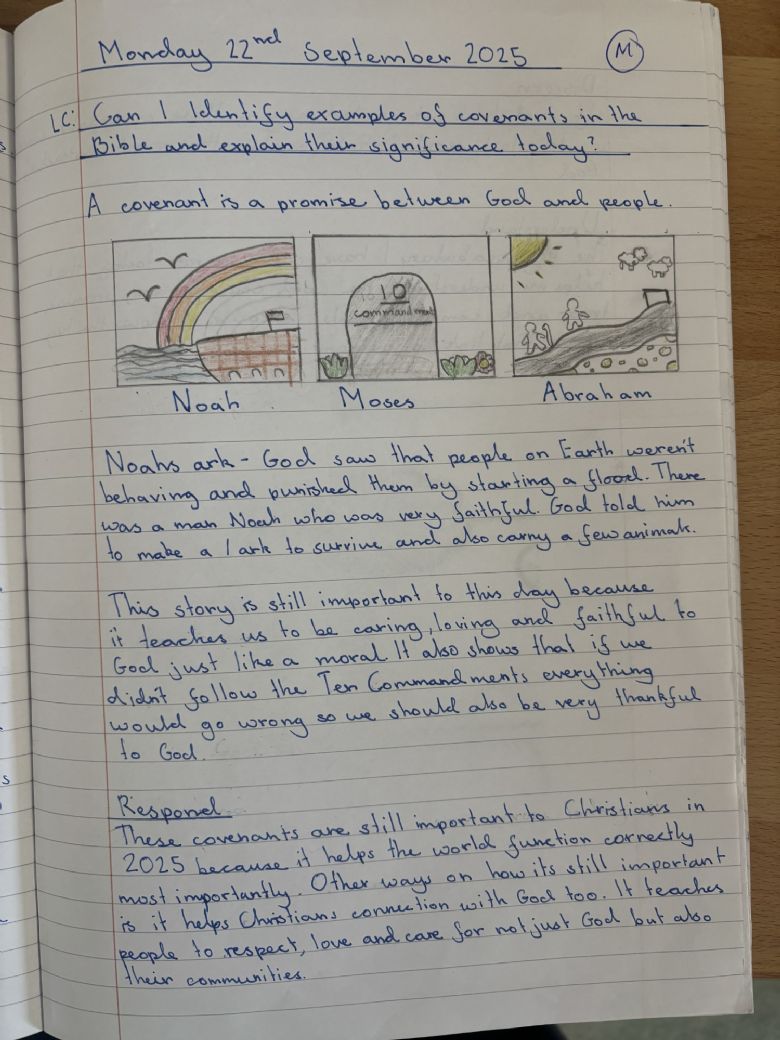 Monday 22nd September 2025
M
LC: Can I Identify examples of covenants in the
Bible and explain their significance today?
A covenant is a promise between God and people.
10
commandment
Noah
Moses
Abraham
Noahs ark - God saw that people on Earth weren't
behaving and punished them by starting a flood. There
was a man Noah who was very faithful. God told him
to make a / ark to survive and also carry a few animals.
This story is still important to this day because
it teaches us to be caring, loving and faithful to
God just like a moral. It also shows that if we
didn't follow the Ten Commandments everything
would go wrong so we should also be very thankful
to God.
Respond
These covenants are still important to Christians in
2025 because it helps the world function correctly
most importantly. Other ways on how its still important
is it helps Christians connection with God too. It teaches
people to respect, love and care for not just God but also
their communities.